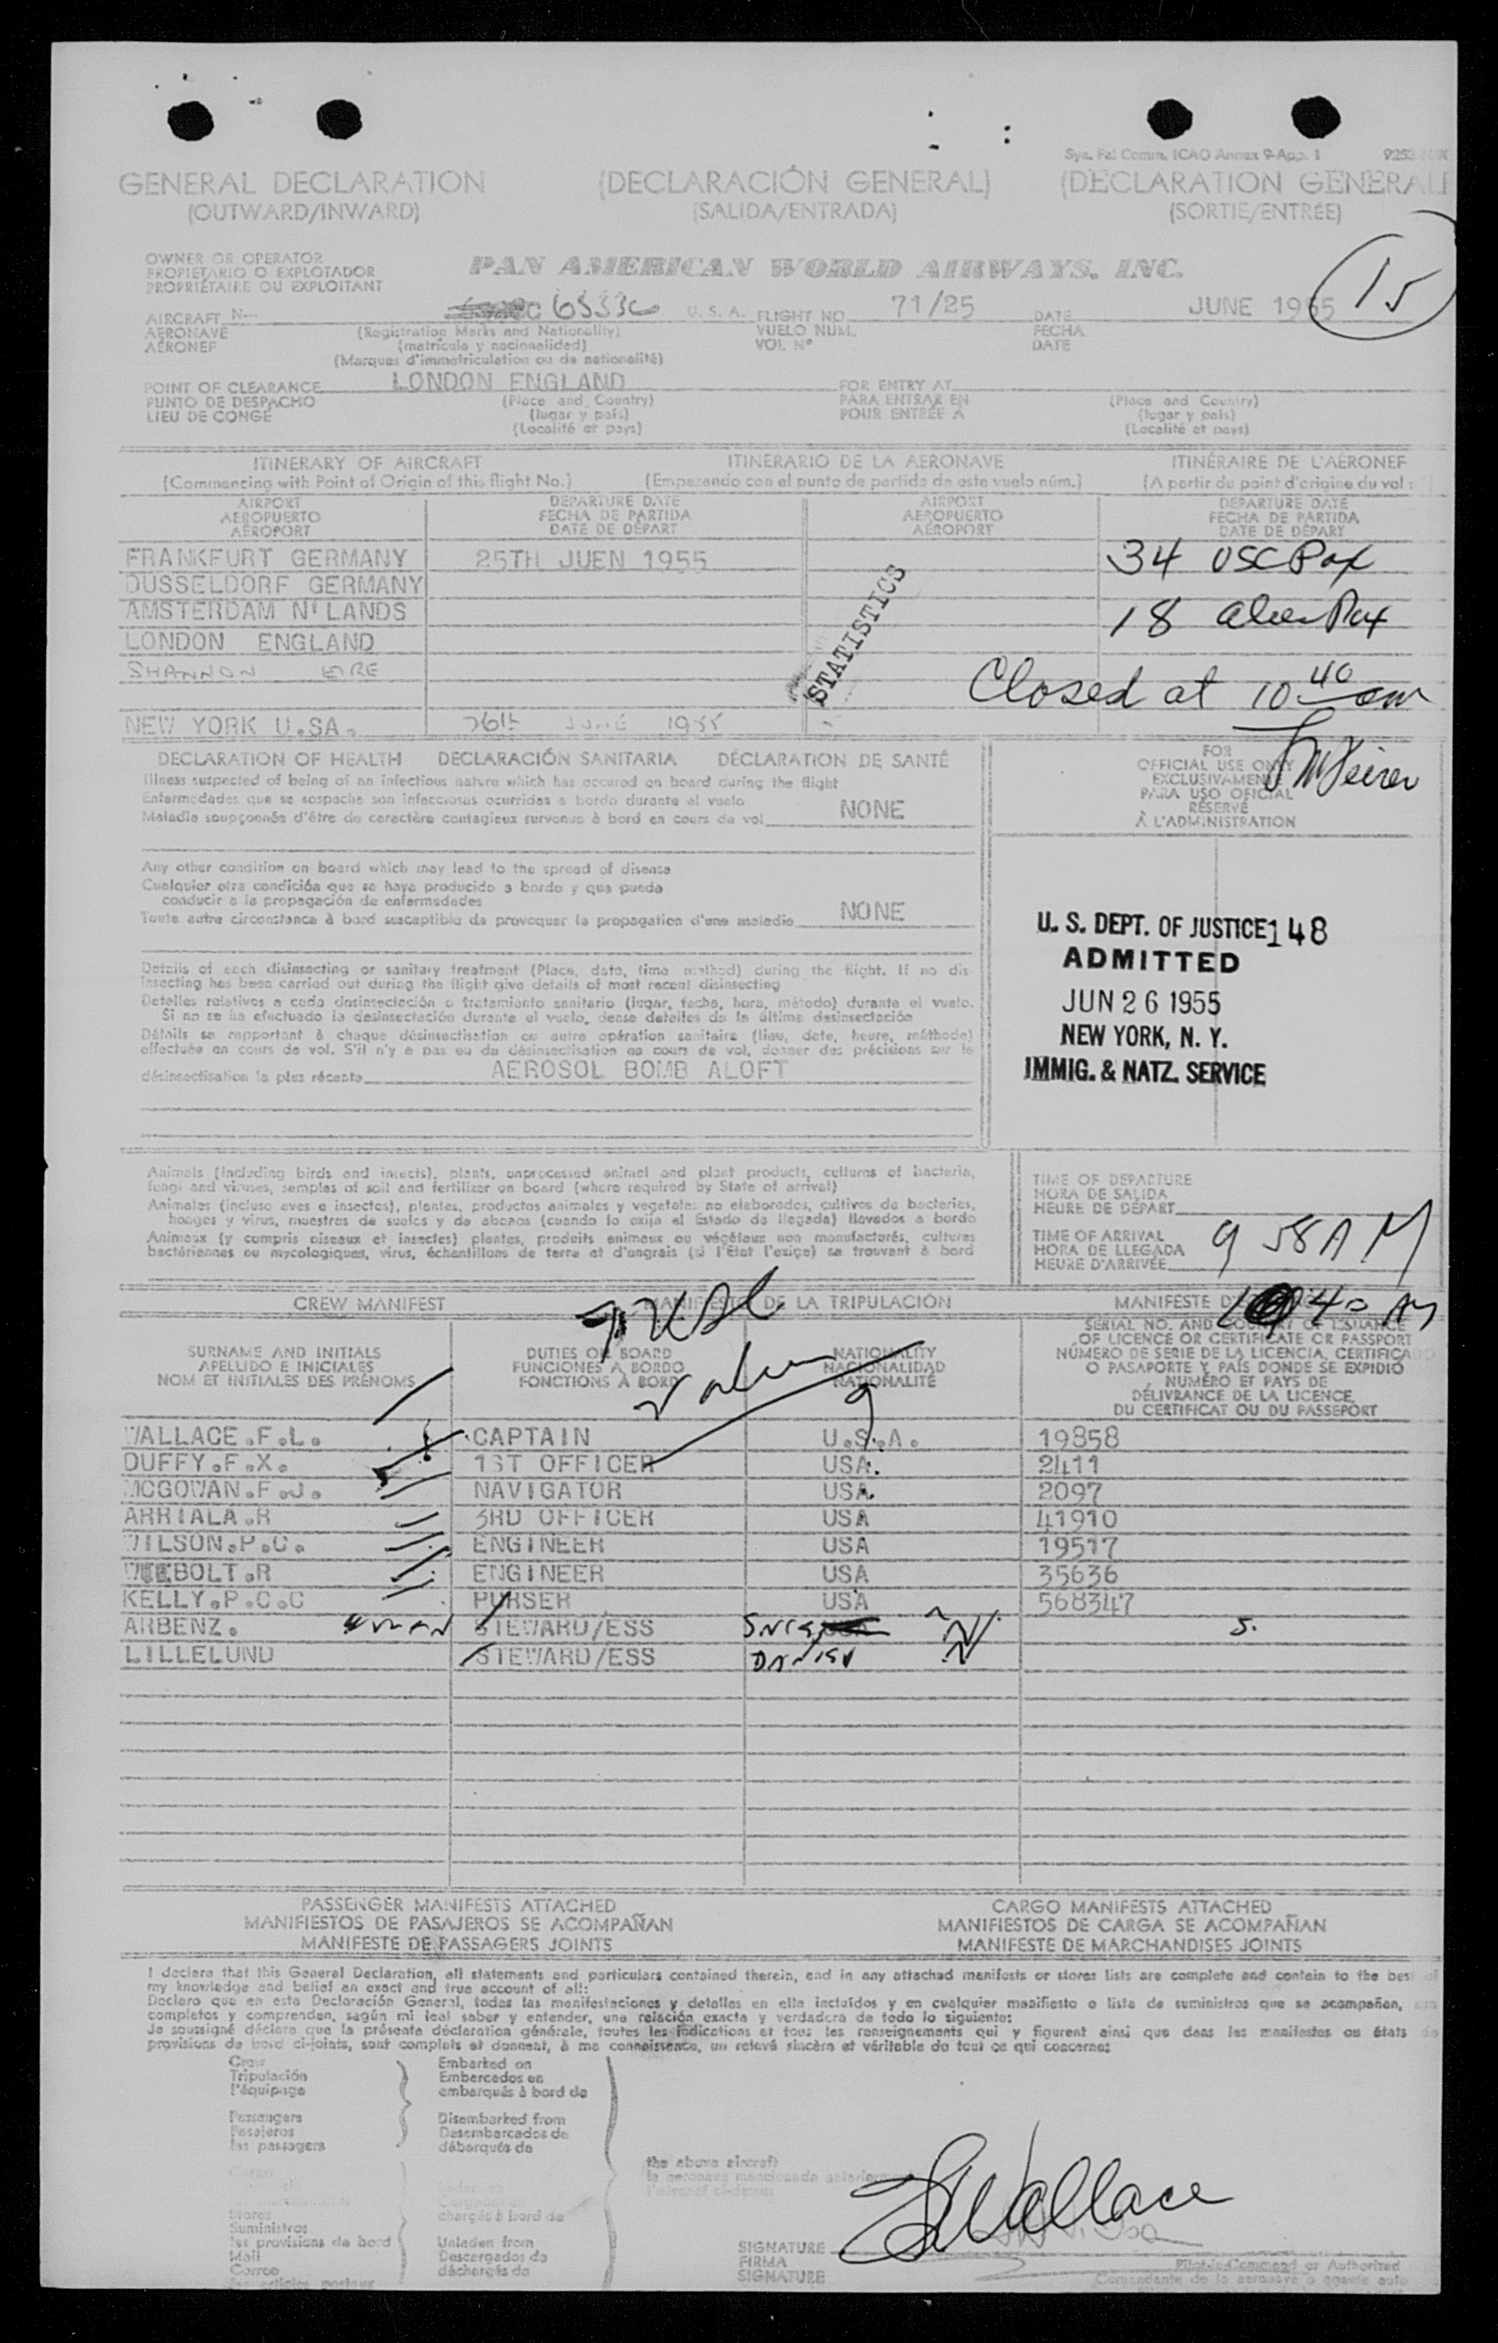 Sys. Fal Comm. ICAO Annex 9-App. 1
GENERAL DECLARATION (DECLARACIÓN GENERAL) (DECLARATION GENERALE
(OUTWARD/INWARD) (SALIDA/ENTRADA) (SORTIE/ENTRÉE)
15
OWNER OR OPERATOR
PROPIETARIO O EXPLOTADOR
PROPRIÉTAIRE OU EXPLOITANT
PAN AMERICAN WORLD AIRWAYS, INC.
AIRCRAFT N- U. S. A. FLIGHT NO 71/25 DATE JUNE 1955
AERONAVE (Registration Marks and Nationality) VUELO NUM. FECHA
AÉRONEF (matrícula y nacionalidad) VOL Nº DATE
(Marques d'immatriculation ou de nationalité)
POINT OF CLEARANCE LONDON ENGLAND FOR ENTRY AT
PUNTO DE DESPACHO (Place and Country) PARA ENTRAR EN (Place and Country)
LIEU DE CONGÉ (lugar y país) POUR ENTRÉE A (lugar y país)
(Localité et pays) (Localité et pays)
ITINERARY OF AIRCRAFT ITINERARIO DE LA AERONAVE ITINÉRAIRE DE L'AÉRONEF
(Commencing with Point of Origin of this flight No.) (Empezando con el punto de partida de este vuelo núm.) (A partir du point d'origine du vol :
AIRPORT DEPARTURE DATE AIRPORT DEPARTURE DATE
AEROPUERTO FECHA DE PARTIDA AEROPUERTO FECHA DE PARTIDA
AÉROPORT DATE DE DÉPART AÉROPORT DATE DE DÉPART
FRANKFURT GERMANY 25TH JUEN 1955 34 USC Pax
DUSSELDORF GERMANY
AMSTERDAM N'LANDS 18 alien Pax
LONDON ENGLAND
STATISTICS
SHANNON EIRE Closed at 10 40 am
NEW YORK U.SA. 26th JUNE 1955
DECLARATION OF HEALTH DECLARACIÓN SANITARIA DÉCLARATION DE SANTÉ
Illness suspected of being of an infectious nature which has occured on board during the flight
Enfermedades que se sospeche son infecciosas ocurridas a bordo durante el vuelo
Maladie soupçonnée d'être de caractère contagieux survenue à bord en cours de vol NONE
FOR
OFFICIAL USE ONLY
EXCLUSIVAMENTE
PARA USO OFICIAL
RÉSERVÉ
À L'ADMINISTRATION
Any other condition on board which may lead to the spread of disease
Cualquier otra condición que se haya producido a bordo y que pueda
conducir a la propagación de enfermedades
Toute autre circonstance à bord susceptible de provoquer la propagation d'une maladie NONE
U. S. DEPT. OF JUSTICE 148
ADMITTED
JUN 26 1955
NEW YORK, N. Y.
IMMIG. & NATZ. SERVICE
Details of each disinsecting or sanitary treatment (Place, date, time method) during the flight. If no dis-
insecting has been carried out during the flight give details of most recent disinsecting
Detalles relativos a cada desinsectación o tratamiento sanitario (lugar, fecha, hora, método) durante el vuelo.
Si no se ha efectuado la desinsectación durante el vuelo, dense detalles de la última desinsectación
Détails se rapportant à chaque désinsectisation ou autre opération sanitaire (lieu, date, heure, méthode)
effectuée en cours de vol. S'il n'y a pas eu de désinsectisation en cours de vol, donner des précisions sur la
désinsectisation la plus récente AEROSOL BOMB ALOFT
Animals (including birds and insects), plants, unprocessed animal and plant products, cultures of bacteria,
fungi and viruses, samples of soil and fertilizer on board (where required by State of arrival)
Animales (incluso aves e insectos), plantas, productos animales y vegetales no elaborados, cultivos de bacterias,
hongos y virus, muestras de suelos y de abonos (cuando lo exija el Estado de llegada) llevados a bordo
Animaux (y compris oiseaux et insectes) plantes, produits animaux ou végétaux non manufacturés, cultures
bactériennes ou mycologiques, virus, échantillons de terre et d'engrais (si l'État l'exige) se trouvant à bord
TIME OF DEPARTURE
HORA DE SALIDA
HEURE DE DÉPART
TIME OF ARRIVAL
HORA DE LLEGADA
HEURE D'ARRIVÉE
9 58 A M
CREW MANIFEST MANIFIESTO DE LA TRIPULACIÓN MANIFESTE
7 USC
9
SURNAME AND INITIALS
APELLIDO E INICIALES
NOM ET INITIALES DES PRÉNOMS
DUTIES ON BOARD
FUNCIONES A BORDO
FONCTIONS À BORD
NATIONALITY
NACIONALIDAD
NATIONALITÉ
SERIAL NO. AND COUNTRY OF ISSUANCE
OF LICENCE OR CERTIFICATE OR PASSPORT
NÚMERO DE SERIE DE LA LICENCIA, CERTIFICADO
O PASAPORTE Y PAÍS DONDE SE EXPIDIÓ
NUMÉRO ET PAYS DE
DÉLIVRANCE DE LA LICENCE
DU CERTIFICAT OU DU PASSEPORT
WALLACE.F.L. CAPTAIN U.S.A. 19858
DUFFY.F.X. 1ST OFFICER USA. 2411
MCGOWAN.F.J. NAVIGATOR USA 2097
ARRIALA.R 3RD OFFICER USA 41910
WILSON.P.C. ENGINEER USA 19517
WEEBOLT.R ENGINEER USA 35636
KELLY.P.C.C PURSER USA 568347
ARBENZ. STEWARD/ESS S.
LILLELUND STEWARD/ESS DANISH
PASSENGER MANIFESTS ATTACHED CARGO MANIFESTS ATTACHED
MANIFIESTOS DE PASAJEROS SE ACOMPAÑAN MANIFIESTOS DE CARGA SE ACOMPAÑAN
MANIFESTE DE PASSAGERS JOINTS MANIFESTE DE MARCHANDISES JOINTS
I declare that this General Declaration, all statements and particulars contained therein, and in any attached manifests or stores lists are complete and contain to the best of
my knowledge and belief an exact and true account of all:
Declaro que en esta Declaración General, todas las manifestaciones y detalles en ella incluídos y en cualquier manifiesto o lista de suministros que se acompañan,
completos y comprenden, según mi leal saber y entender, una relación exacta y verdadera de todo lo siguiente:
Je soussigné déclare que la présente déclaration générale, toutes les indications et tous les renseignements qui y figurent ainsi que dans les manifestes ou états de
provisions de bord ci-joints, sont complets et donnent, à ma connaissance, un relevé sincère et véritable de tout ce qui concerne:
Crew
Tripulación
l'équipage
Embarked on
Embarcados en
embarqués à bord de
Passengers
Pasajeros
les passagers
Disembarked from
Desembarcados de
débarqués de
the above aircraft
Cargo
Stores
Suministros
les provisions de bord
Mail
Correo
chargés à bord de
Unladen from
Descargados de
déchargés de
FLWallace
SIGNATURE
FIRMA
SIGNATURE
Pilot-in-Command or Authorized
Comandante de la aeronave o agente auto